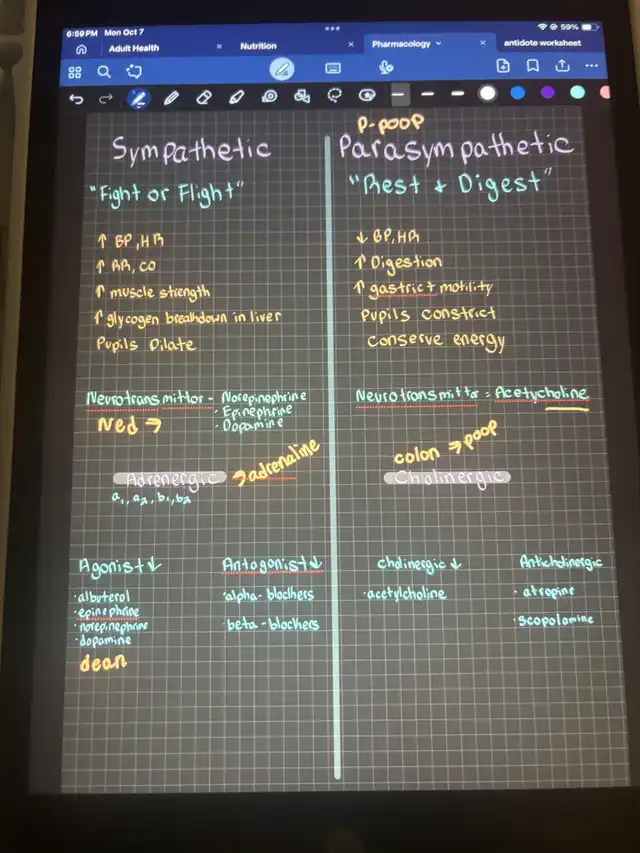 6:59 PM Mon Oct 7
59%
Adult Health
Nutrition
Pharmacology
antidote worksheet
P-POOP
Sympathetic
"Fight or Flight"
↑ BP, HR
↑ RR, CO
↑ muscle strength
↑ glycogen breakdown in liver
Pupils Dilate
Neurotransmittor - Norepinephrine
· Epinephrine
· Dopamine
Ned →
Adrenergic → adrenaline
a1, a2, b1, b2
Agonist ↓
· albuterol
· epinephrine
· norepinephrine
· dopamine
dean
Antagonist ↓
· alpha-blockers
· beta-blockers
Parasympathetic
"Rest + Digest"
↓ BP, HR
↑ Digestion
↑ gastrict motility
Pupils constrict
Conserve energy
Neurotransmittor = Acetycholine
colon → poop
Cholinergic
cholinergic ↓
· acetylcholine
Anticholinergic
· atropine
· scopolamine